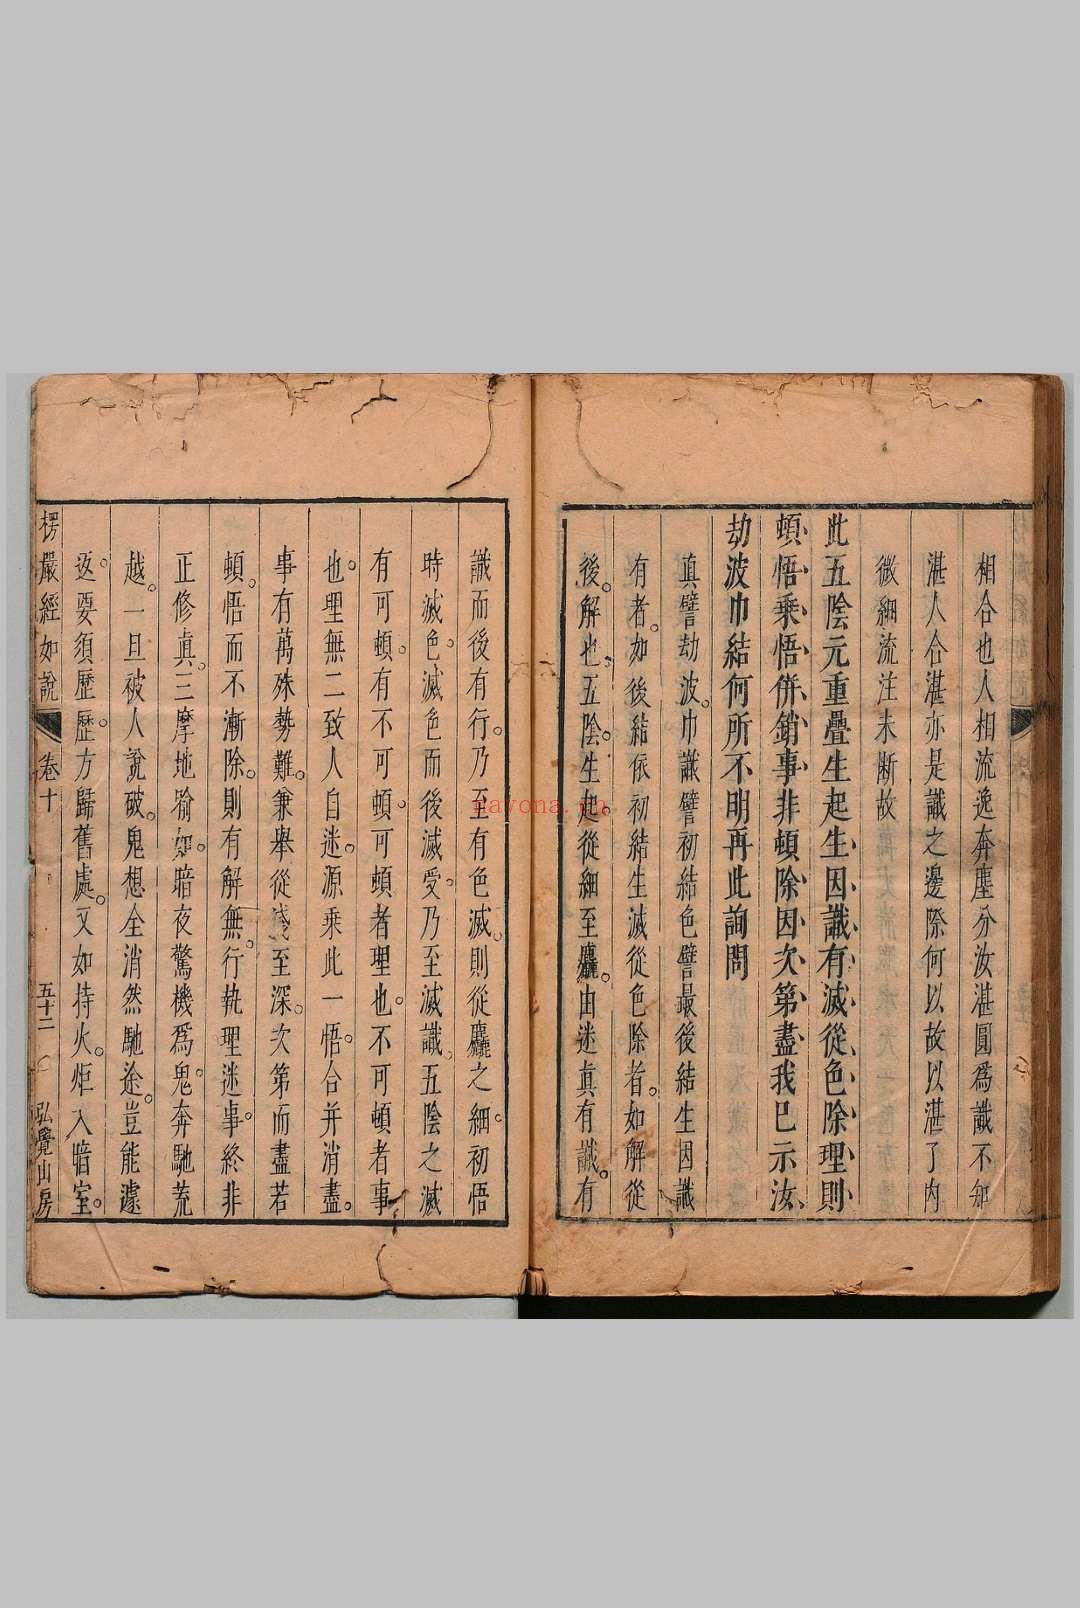 相合也人相流逸奔塵分汝湛圓爲識不知
湛人合湛亦是識之邊際何以故以湛了內
微細流注未斷故
此五陰元重疊生起生因識有滅從色除理則
頓悟乘悟併銷事非頓除因次第盡我已示汝
劫波巾結何所不明再此詢問
眞譬劫波。巾識譬初結色譬最後結生因識
有者。如後結依初結生滅從色除者。如解從
後。解也。五陰。生起從細至麤。由迷眞有識。有
識而後有行。乃至有色滅。則從麤之細。初悟
時滅色。滅色而後滅受。乃至滅識。五陰之滅
有可頓。有不可頓。可頓者理也。不可頓者事
也。理無二致人自迷。源乘此一悟。合并消盡。
事有萬殊勢難。兼舉從淺至深。次第而盡若
頓。悟而不漸除。則有解無。行執理迷事。終非
正修眞。三摩地瑜如。暗夜驚機爲鬼。奔馳荒
越。一旦被人說破。鬼想全消然馳途。豈能遽
返。要須歷歷。方歸舊處。又如持火。炬入暗室。
楞嚴經如說 卷十 五十二 弘覺山房
nayona.cn